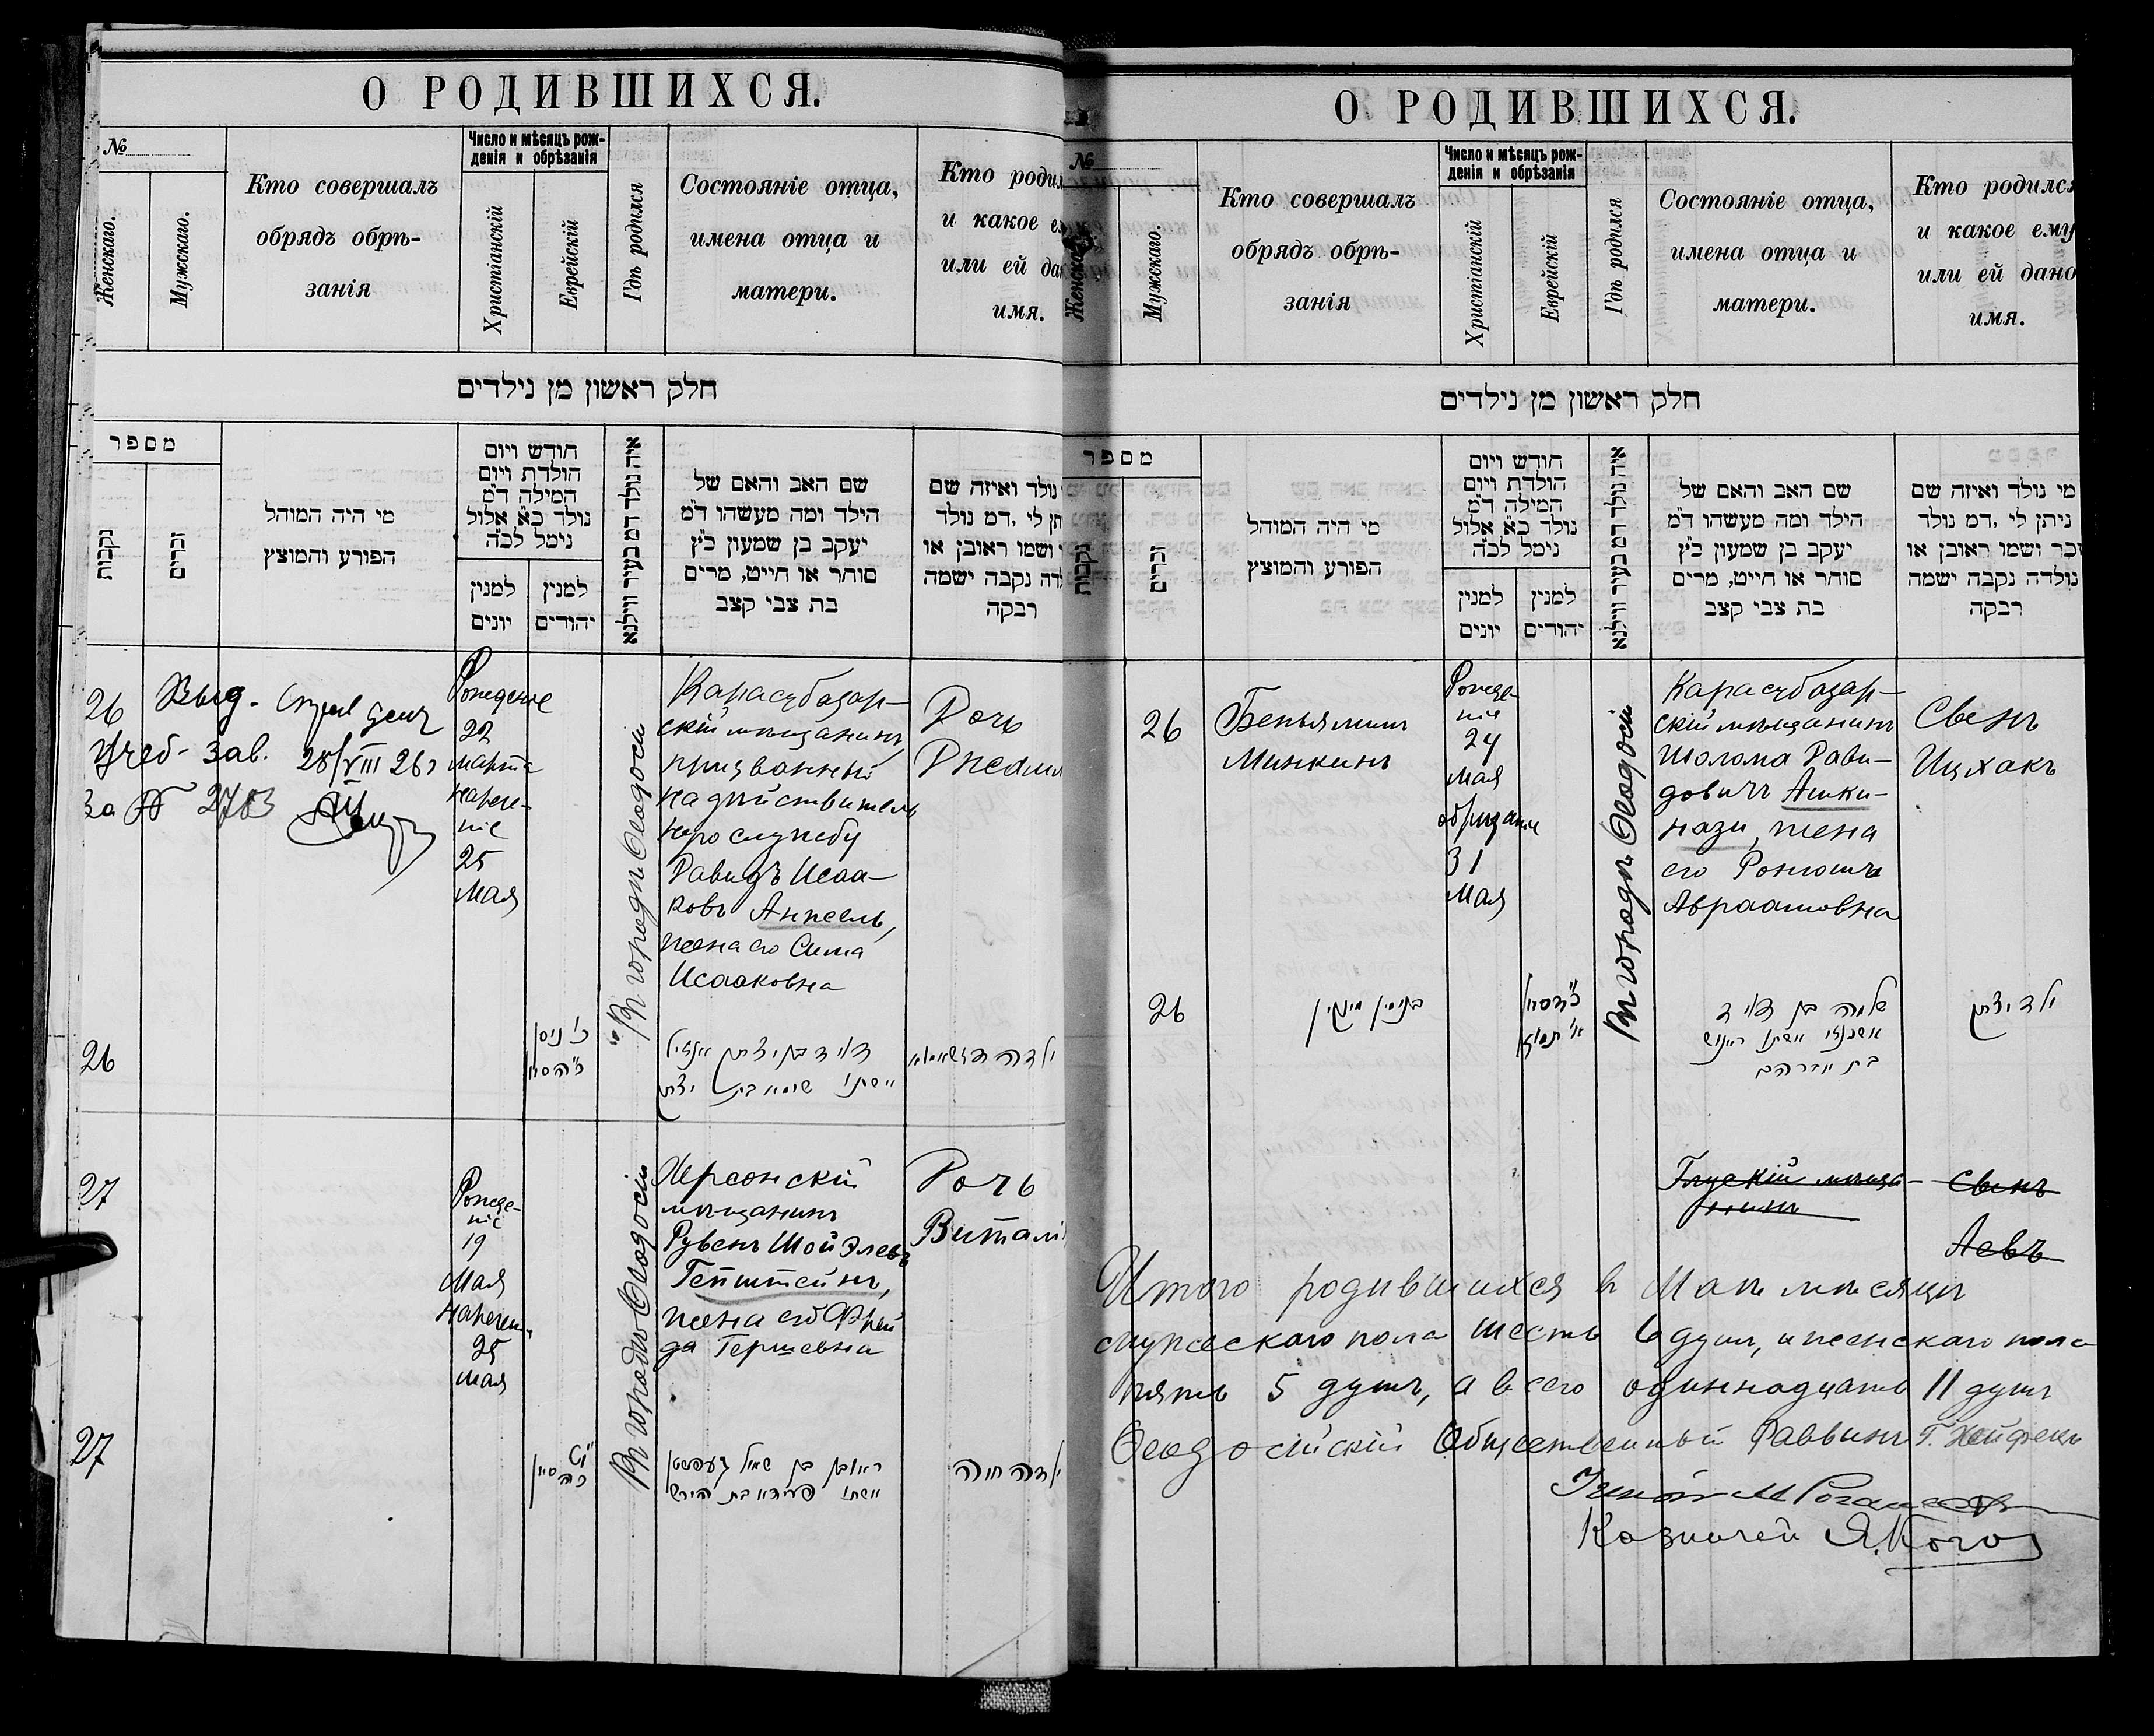 О РОДИВШИХСЯ.
№
Женскаго.
Мужскаго.
Кто совершалъ
обрядъ обрѣ-
занія
Число и мѣсяцъ рож-
денія и обрѣзанія
Христіанскій
Еврейскій
Гдѣ родился
Состояніе отца,
имена отца и
матери.
Кто родил
и какое е
или ей да
имя.
חלק ראשון מן נילדים
מספר
נקבות
זכרים
מי היה המוהל
הפורע והמוצץ
חודש ויום
הולדת ויום
המילה ד"מ
נולד כ"א אלול
נימל לכ"ה
למנין
יונים
למנין
יהודים
איה נולד דמ בעיר ווילנא
שם האב והאם של
הילד ומה מעשהו ד"מ
יעקב בן שמעון כ"ץ
סוחר או חייט, מרים
בת צבי קצב
נולד ואיזה שם
תן לי, דמ נולד
ושמו ראובן או
לדה נקבה ישמה
רבקה
26
Выд.
Учеб-зав. 28/VIII 26г
За № 2783
Рожденіе
22
марта
нарече-
ніе
25
Мая
Въ городѣ Ѳеодосіи
Карасубазар-
скій мѣщанинъ,
призванный
на дѣйствитель
ную службу
Давидъ Исаа-
ковъ Анжель,
жена его Сима
Исааковна
Дочь
26
כ"ז ניסן
דוד בן יצחק אנזיל
ואשתו שימא בת יצחק
27
Рожде-
ніе
19
Мая
наречен.
25
мая
Въ городѣ Ѳеодосіи
Херсонскій
мѣщанинъ
Рувенъ Шойэлевъ
Гепштейнъ,
жена его Фрей
да Гершевна
Дочь
Виталі
27
ראובן בן שאול געפשטן
ואשתו פריידא בת הירש
ילדה חוה
О РОДИВШИХСЯ.
№
Женскаго.
Мужскаго.
Кто совершалъ
обрядъ обрѣ-
занія
Число и мѣсяцъ рож-
денія и обрѣзанія
Христіанскій
Еврейскій
Гдѣ родился
Состояніе отца,
имена отца и
матери.
Кто родилс
и какое ему
или ей дано
имя.
חלק ראשון מן נילדים
מספר
נקבות
זכרים
מי היה המוהל
הפורע והמוצץ
חודש ויום
הולדת ויום
המילה ד"מ
נולד כ"א אלול
נימל לכ"ה
למנין
יונים
למנין
יהודים
איה נולד דמ בעיר ווילנא
שם האב והאם של
הילד ומה מעשהו ד"מ
יעקב בן שמעון כ"ץ
סוחר או חייט, מרים
בת צבי קצב
מי נולד ואיזה שם
ניתן לי, דמ נולד
זכר ושמו ראובן או
נולדה נקבה ישמה
רבקה
26
Беньяминъ
Минкинъ
Рожде-
ніе
24
мая
обрѣзаніе
31
Мая
Въ городѣ Ѳеодосіи
Карасубазар-
скій мѣщанинъ
Шолома Дави-
довичъ Ашки-
нази, жена
его
Авраамовна
Сынъ
Ицхакъ
26
בנימין מינקין
א' תמוז
שלמה בן דוד
אשכנזי ואשתו
בת אברהם
ילד יצחק
Сынъ
Левъ
Итого родившихся въ Маѣ мѣсяцѣ
мужескаго пола шесть 6 душъ, и женскаго пола
пять 5 душъ, а всего одиннадцать 11 душъ
Ѳеодосійскій Общественный Раввинъ Г. Хейфецъ
Казначей